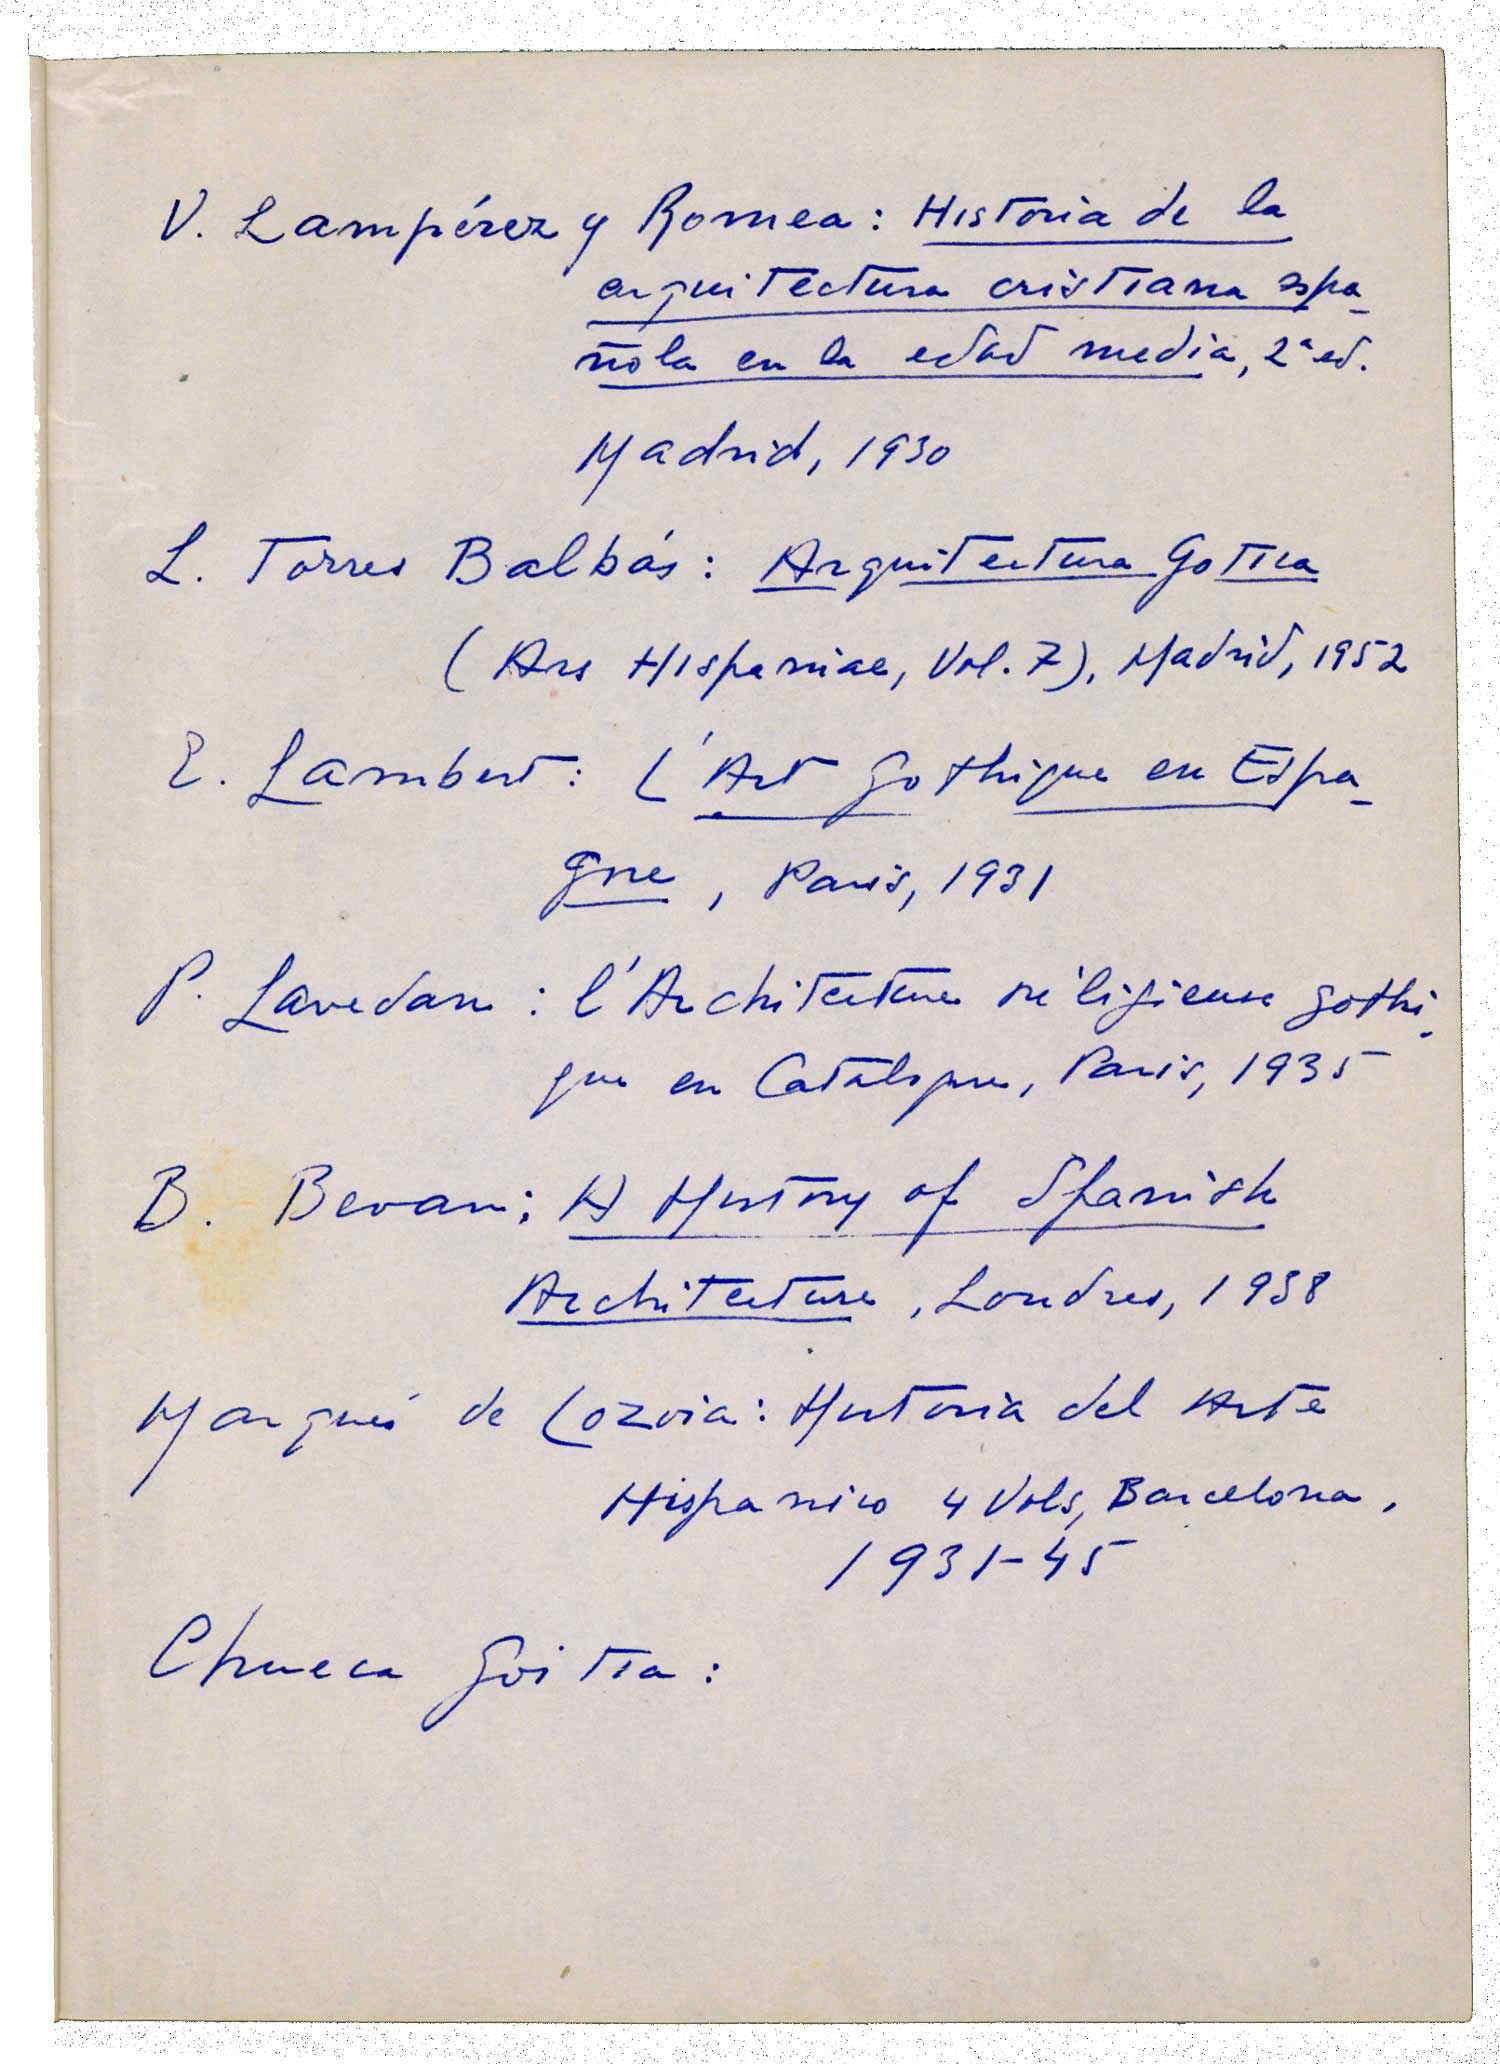 V. Lampérez y Romea: Historia de la
arquitectura cristiana espa-
ñola en la edad media, 2ª ed.
Madrid, 1930
L. Torres Balbás: Arquitectura Gotica
(Ars Hispaniae, Vol. 7), Madrid, 1952
E. Lambert: L'Art Gothique en Espa-
gne, Paris, 1931
P. Lavedan: l'Architecture réligieuse gothi-
que en Catalogne, Paris, 1935
B. Bevan: A History of Spanish
Architecture, Londres, 1938
Marqués de Lozoia: Historia del Arte
Hispanico 4 Vols, Barcelona,
1931-45
Chueca Goitia: